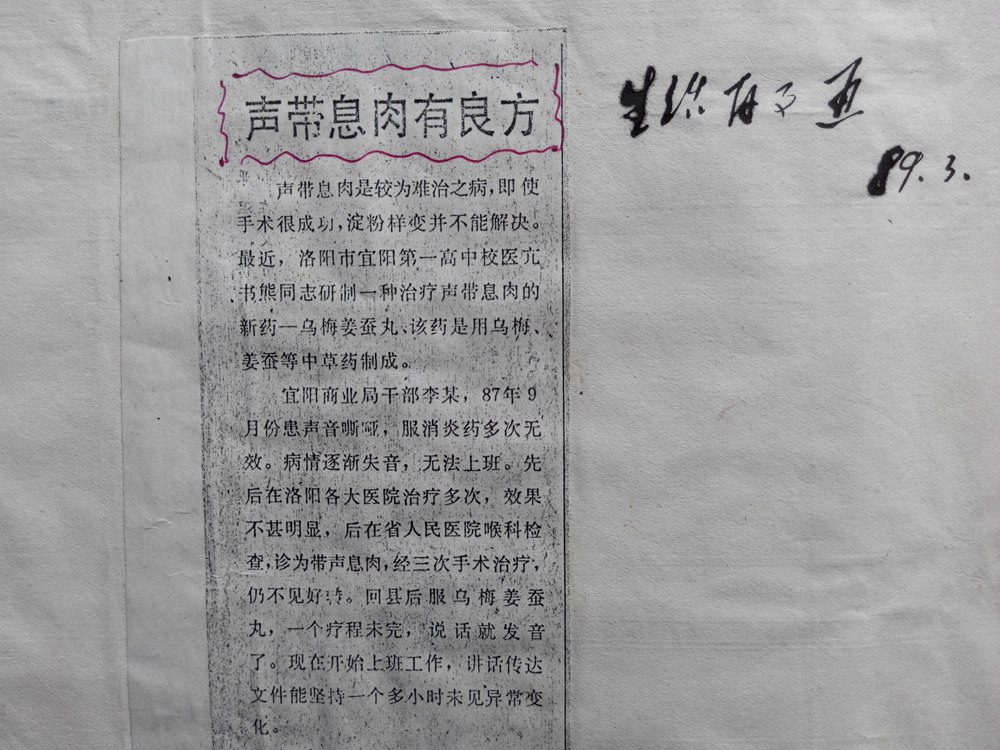 声带息肉有良方
声带息肉是较为难治之病,即使
手术很成功,淀粉样变并不能解决。
最近，洛阳市宜阳第一高中校医亢
书熊同志研制一种治疗声带息肉的
新药—乌梅姜蚕丸、该药是用乌梅、
姜蚕等中草药制成。
宜阳商业局干部李某，87年9
月份患声音嘶哑，服消炎药多次无
效。病情逐渐失音，无法上班。先
后在洛阳各大医院治疗多次，效果
不甚明显，后在省人民医院喉科检
查,诊为带声息肉,经三次手术治疗,
仍不见好转。回县后服乌梅姜蚕
丸，一个疗程未完，说话就发音
了。现在开始上班工作，讲话传达
文件能坚持一个多小时未见异常变
化。
生活
89.3.